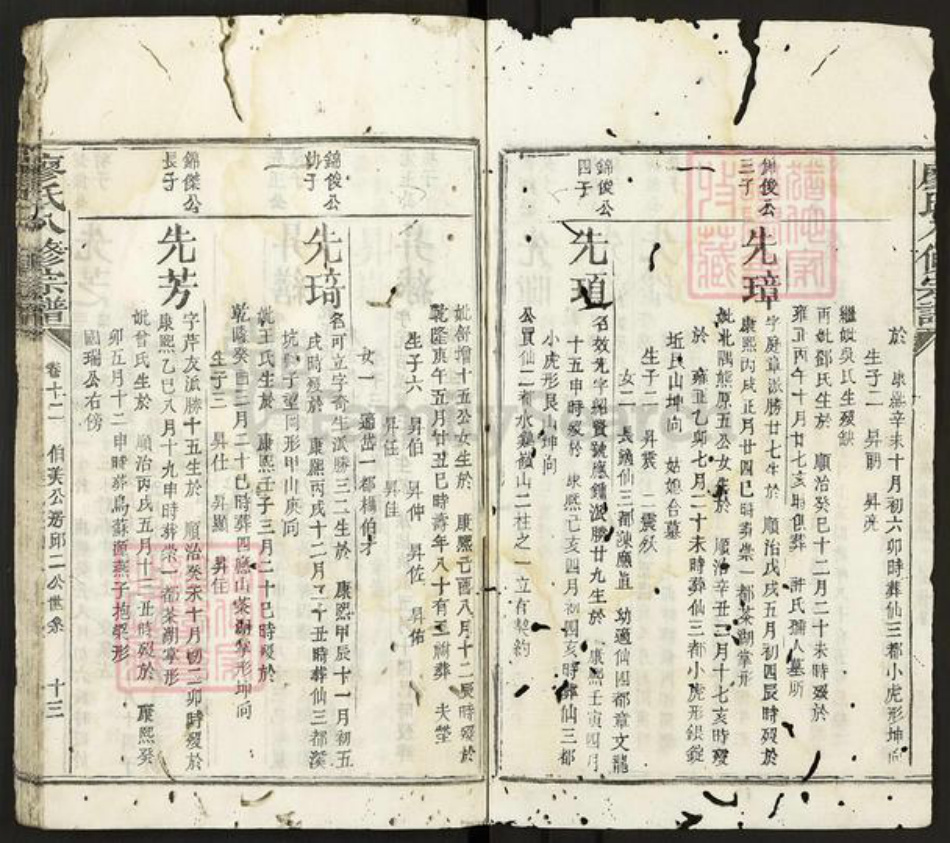 於 康熙辛未十月初六卯時葬仙三都小虎形坤向
生子二 昇嗣 昇
繼娶吳氏生歿缺
再妣鄧氏生於 順治癸巳十二月二十未時歿於
雍正丙午十月廿七亥時俱葬 許氏孺人墓所
錦俊公三子
先璋
字庭章派勝廿七生於 順治戊戌五月初四辰時歿於
康熙丙戌正月廿四巳時葬崇一都茶湖掌形
妣北隅熊原五公女生於 順治辛丑三月十七亥時歿
於 雍正乙卯七月二十未時葬仙三都小虎形銀錠
坵艮山坤向 姑媳合墓
生子二 昇震 二震
女二 長適仙三都陳廟 幼適仙四都章文龍
錦俊公四子
先頊
名效先字紹賢號應鍾派勝廿九生於 康熙壬寅四月
十五申時歿於 康熙己亥四月初四亥時葬仙三都
小虎形艮山坤向
公買仙二都水 山二柱之一立有契約
妣舒增十五公女生於 康熙己酉八月十二辰時歿於
乾隆庚午五月廿五巳時壽年八十有二祔葬 夫塋
生子六 昇伯 昇仲 昇佐 昇佑
昇任 昇佳
女一 適岱一都楊伯才
錦俊公幼子
先琦
名可立字奇生派勝三二生於 康熙甲辰十一月初五
戌時歿於 康熙丙戌十二月二十丑時葬仙三都溪
坑獅子望岡形甲山庚向
妣王氏生於 康熙壬子三月二十巳時歿於
乾隆癸酉二月二十巳時葬四應山茶湖掌形坤向
生子三 昇仕 昇顯 昇住
錦傑公長子
先芳
字芹友派勝十五生於 順治癸未十月初二卯時歿於
康熙乙巳八月十九申時葬崇一都茶湖掌形
妣曾氏生於 順治丙戌五月十三丑時歿於 康熙癸
卯五月十二申時葬烏蘇源燕子抱梁形
國瑞公右傍
廖氏八修宗譜
卷十二 伯美公房邱二公世系 十三